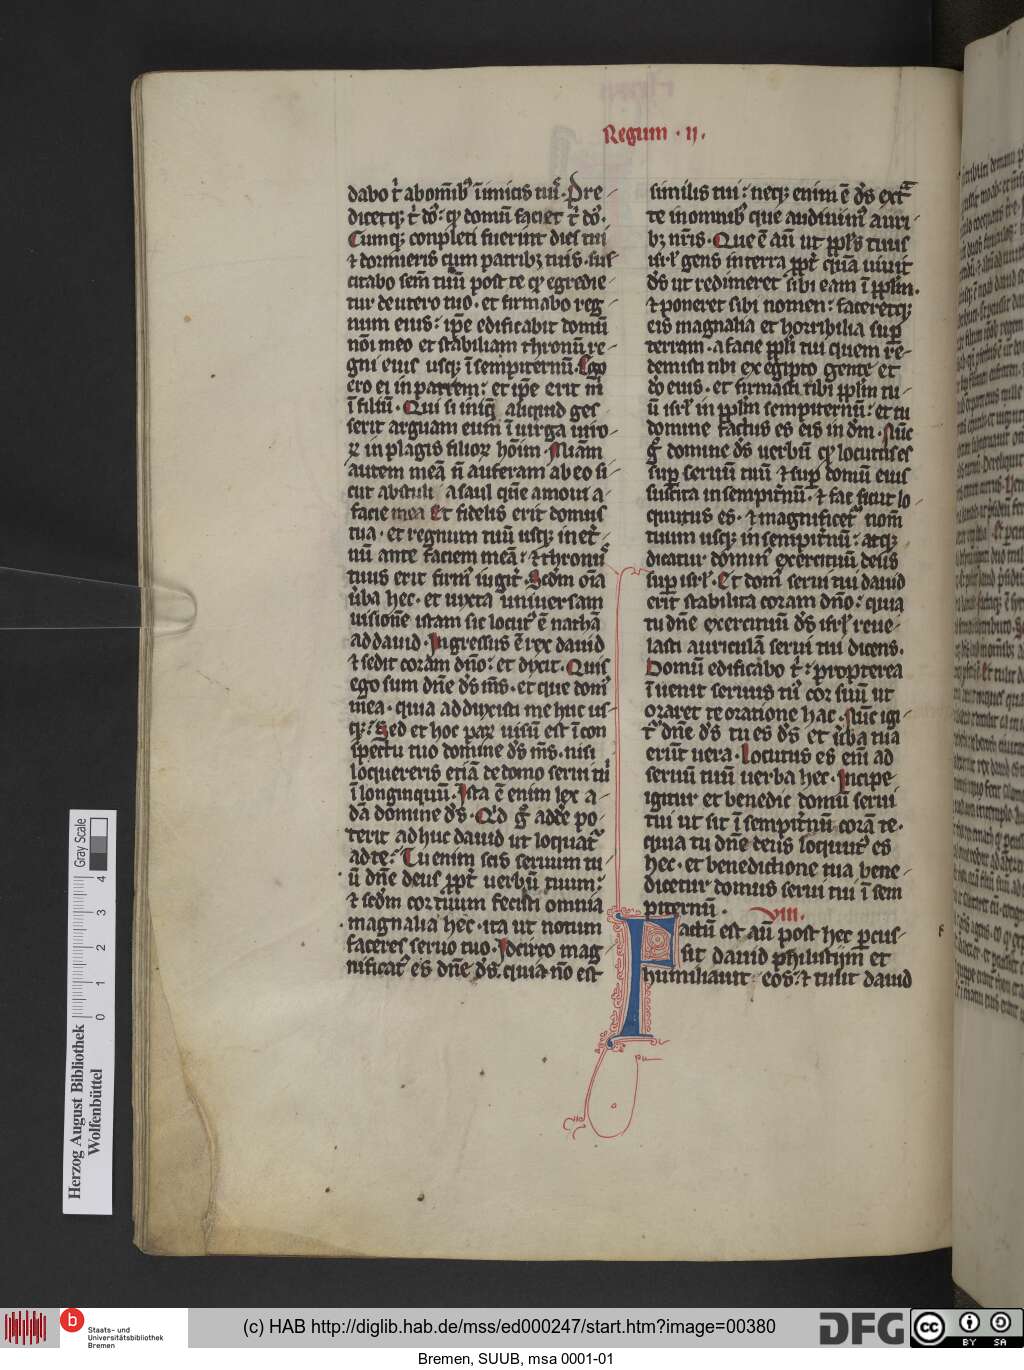 Regum · ii.
dabo t̕ ab om̅ibꝰ i̅imicis tuis. Pre
dicetq; t̕ d̅s: qꝫ domu̅ faciet t̕ d̅s.
Cumq; conpleti fuerint dies tui
⁊ dormieris cum patribꝫ tuis. sus
citabo sem̅ tuu̅ post te qꝫ egredie
tur de utero tuo. et firmabo reg
num eius: ip̅e edificabit domu̅
no̅i meo et stabiliam thronu̅ re
gni eius usq; i̅ sempiternu̅. Ego
ero ei in patrem: et ip̅e erit m̅
i̅ filiu̅. Qui si iniq̅ aliquid ges
serit arguam eum i̅ uirga uiro
ꝝ in plagis filioꝝ ho̅im. Mia̅m
autem mea̅ n̅ auferam ab eo si
cut abstuli a saul que̅ amoui a
facie mea Et fidelis erit domus
tua. et regnum tuu̅ usq; in et̕
nu̅ ante faciem mea̅: ⁊ thronꝰ
tuus erit firmꝰ iugit̕. Scd̅m o̅ia
u̅ba hec. et iuxta uniuersam
uisione̅ istam sic locutꝰ e̅ natha̅
ad dauid. Ingressus e̅ rex dauid
⁊ sedit coram dn̅o: et dixit. Quis
ego sum dn̅e d̅s m̅s. et que domꝰ
m̅ea. quia adduxisti me huc us
q;: Sed et hoc paꝝ uisu̅ est i̅ con
spectu tuo domine d̅s m̅s. nisi
loquereris etia̅ de domo serui tui
i̅ longinquu̅. Ista e̅ enim lex a
da̅ domine d̅s. Q'd g̅ adde̅ po
terit ad huc dauid ut loquat᷑
ad te: Tu enim scis seruum tu
u̅ dn̅e deus pp̅t̕ uerbu̅ tuum:
⁊ scd̅m cor tuum fecisti omnia
magnalia hec. ita ut notum
faceres seruo tuo. Idcirco mag
nificat᷑ es dn̅e d̅s. quia no̅ est
similis tui: neq; enim e̅ d̅s ext̅
te in omnibꝰ que audiuimꝰ auri
bꝫ nr̅is. Que e̅ au̅ ut ppl̅s tuus
isrl̅ gens in terra pp̅t̕ qua̅ uiuit
d̅s ut redimeret sibi eam i̅ ppl̅m.
⁊ poneret sibi nomen: faceretq;
eis magnalia et horribilia sup̅
terram. a facie ppl̅i tui quem re̅
demisti tibi ex egipto gente et
d̅o eius. et firmasti tibi ppl̅m tu
u̅ isrl̅ in ppl̅m sempiternu̅: et tu
domine factus es eis in d̅m. Nu̅c
g̅ domine d̅s uerbu̅ qꝫ locutus es
sup̅ seruu̅ tuu̅ ⁊ sup̅ domu̅ eius
suscita in sempit̕nu̅. ⁊ fac sicut lo
quutus es. ⁊ magnificet᷑ nom̅
tuum usq; in sempit̕nu̅: atq;
dicatur dominꝰ exercituu̅ deus
sup̅ isrl̅. Et domꝰ serui tui dauid
erit stabilita coram dn̅o: quia
tu dn̅e exercituu̅ d̅s isrl̅ reue
lasti auricula̅ serui tui dicens.
Domu̅ edificabo t̕: propterea
i̅uenit seruus tuꝰ cor suu̅ ut
oraret te oratione hac. Nu̅c igi
t᷑ dn̅e d̅s tu es d̅s et u̅ba tua
eru̅t uera. Locutus es eni̅ ad
seruu̅ tuu̅ uerba hec. Incipe
igitur et benedic domu̅ serui
tui ut sit i̅ sempit̕nu̅ cora̅ te.
quia tu dn̅e deus loquutꝰ es
hec. et benedictione tua bene
dicetur domus serui tui i̅ sem
piternu̅. VIII.
Factu̅ est au̅ post hec p̅cus
sit dauid philistiim et
humiliauit eos: ⁊ tulit dauid
Gray Scale
0 1 2 3 4
Herzog August Bibliothek
Wolfenbüttel
b
Staats- und
Universitätsbibliothek
Bremen
(c) HAB http://diglib.hab.de/mss/ed000247/start.htm?image=00380
DFG
cc
BY SA
Bremen, SUUB, msa 0001-01